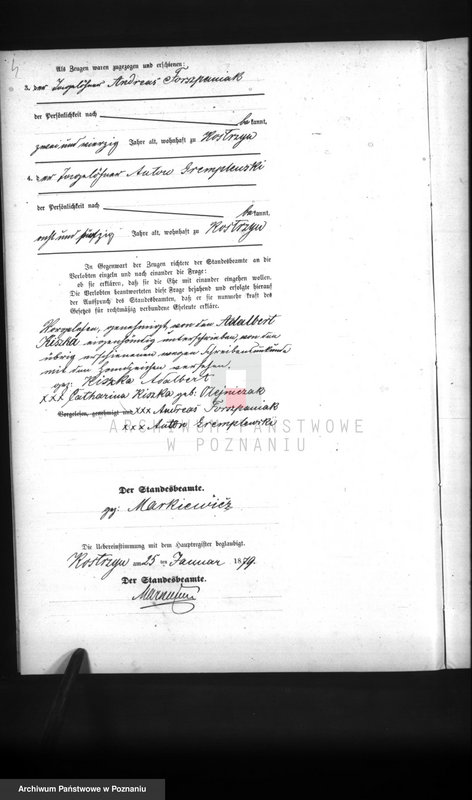 Als Zeugen waren zugezogen und erschienen:
3. der Tagelöhner Andreas Torszpaniak
der Persönlichkeit nach
be kannt,
zwei und vierzig Jahre alt, wohnhaft zu Kostrzyn
4. der Tagelöhner Anton Gremplewski
der Persönlichkeit nach
be kannt,
acht und Jahre alt, wohnhaft zu Kostrzyn
In Gegenwart der Zeugen richtete der Standesbeamte an die
Verlobten einzeln und nach einander die Frage:
ob sie erklären, daß sie die Ehe mit einander eingehen wollen.
Die Verlobten beantworteten diese Frage bejahend und erfolgte hierauf
der Ausspruch des Standesbeamten, daß er sie nunmehr kraft des
Gesetzes für rechtmäßig verbundene Eheleute erkläre.
Vorgelesen, genehmigt, von dem Adalbert
Kiszka eigenhändig unterschrieben, von den
übrig erschienenen wegen Schreibensunkunde
mit den Handzeichen versehen.
gez: Kiszka Adalbert
xxx Catharina Kiszka geb: Olejniczak
Vorgelesen, genehmigt und xxx Andreas Torszpaniak
xxx Anton Gremplewski
ARCHIWUM PAŃSTWOWE
W POZNANIU
Der Standesbeamte.
gz: Markiewicz
Die Uebereinstimmung mit dem Hauptregister beglaubigt.
Kostrzyn am 25 ten Januar 1879.
Der Standesbeamte.
Archiwum Państwowe w Poznaniu